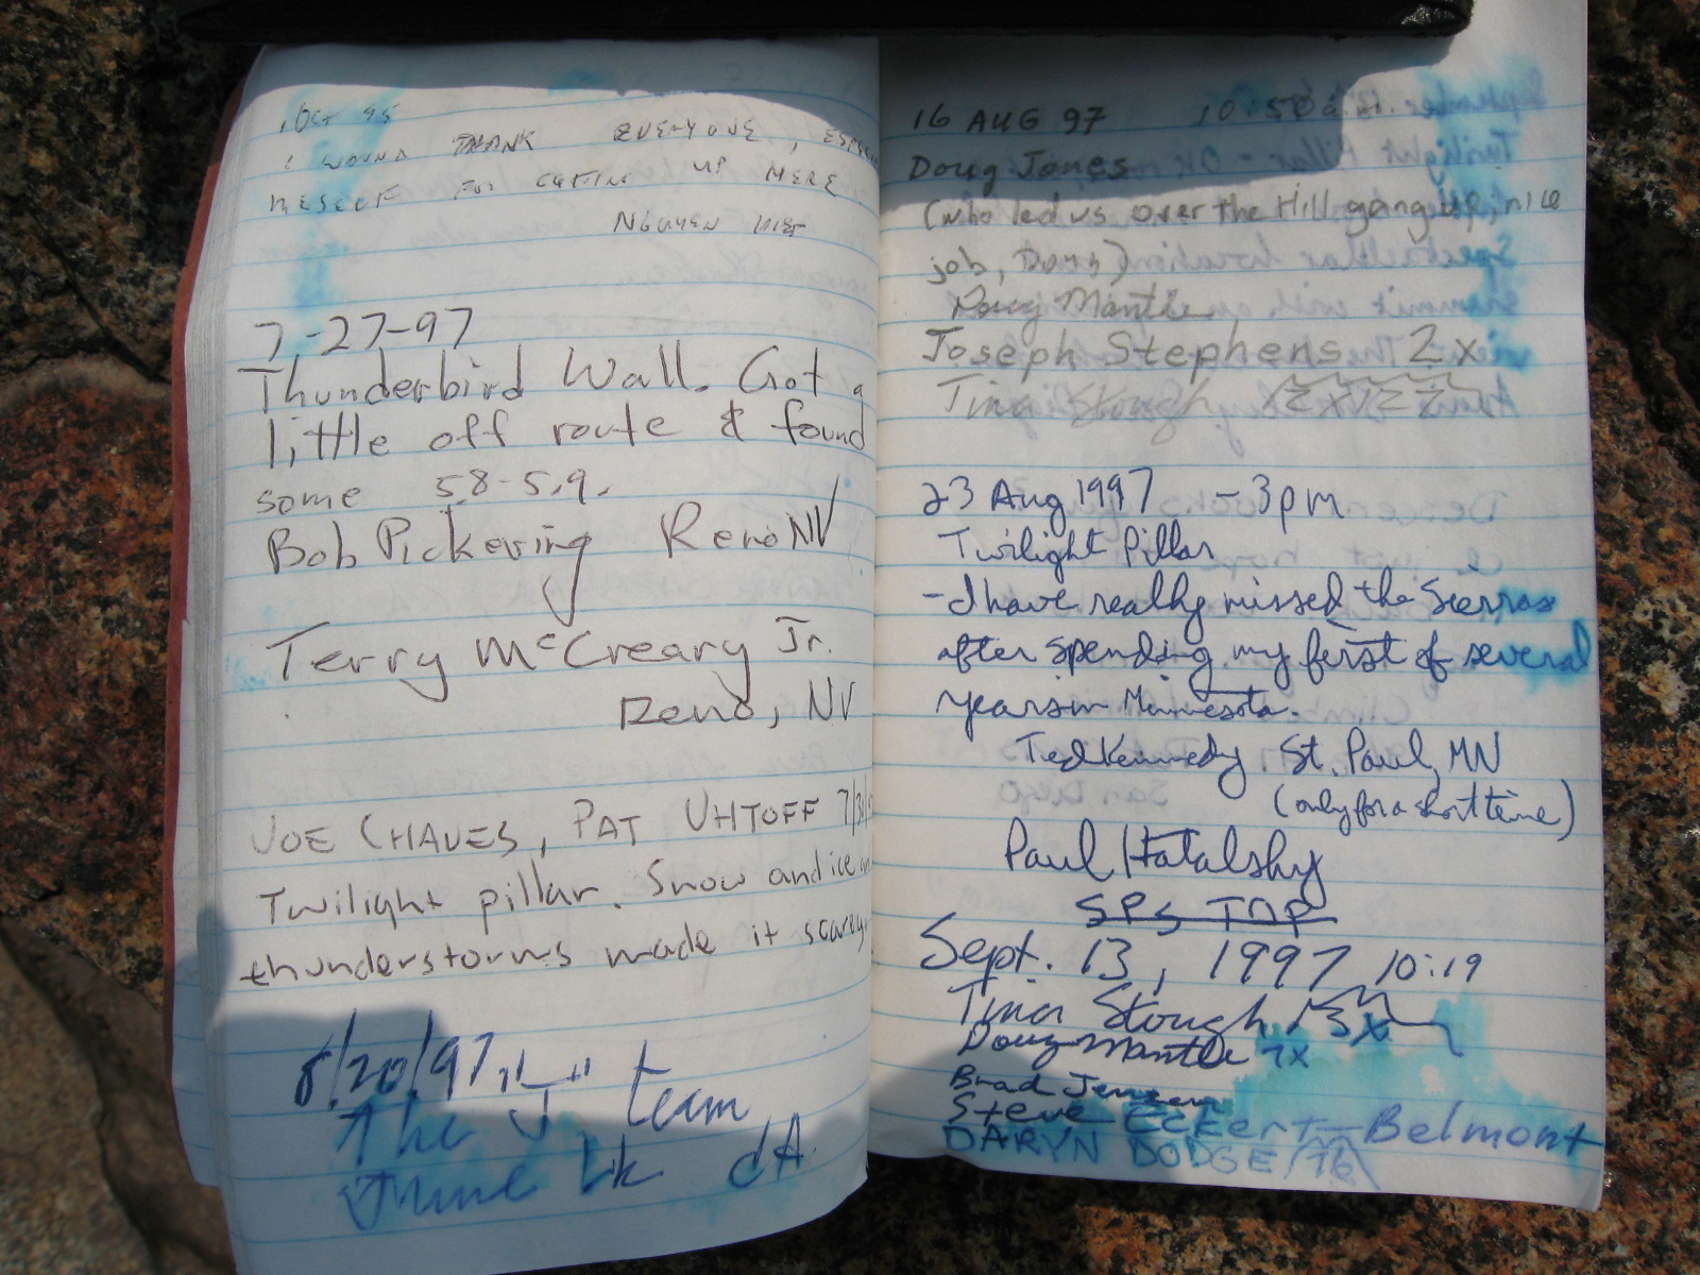 1 Oct 95
I WOULD THANK EVERYONE,
RESCUE FOR GETTING UP HERE.
NGUYEN VIET
7-27-97
Thunderbird Wall. Got a
little off route & found
some 5.8-5.9.
Bob Pickering Reno NV
Terry McCreary Jr.
Reno, NV
JOE CHAVES, PAT UHTOFF
Twilight pillar. Snow and ice
thunderstorms made it scary
8/20/97
The "J" team
June Lk CA
16 AUG 97 10:50 a.m.
Doug Jones
(who led us over the Hill going up, nice
job, Doug)
Doug Mantle
Joseph Stephens 2x
Tina Stough
23 Aug 1997 - 3pm
Twilight Pillar
- I have really missed the Sierras
after spending my first of several
years in Minnesota.
Ted Kennedy St. Paul, MN
(only for a short time)
Paul Hatalsky
SPS TOP
Sept. 13, 1997 10:19
Tina Stough 3x
Doug Mantle 7x
Brad Jensen
Steve Eckert - Belmont
DARYN DODGE